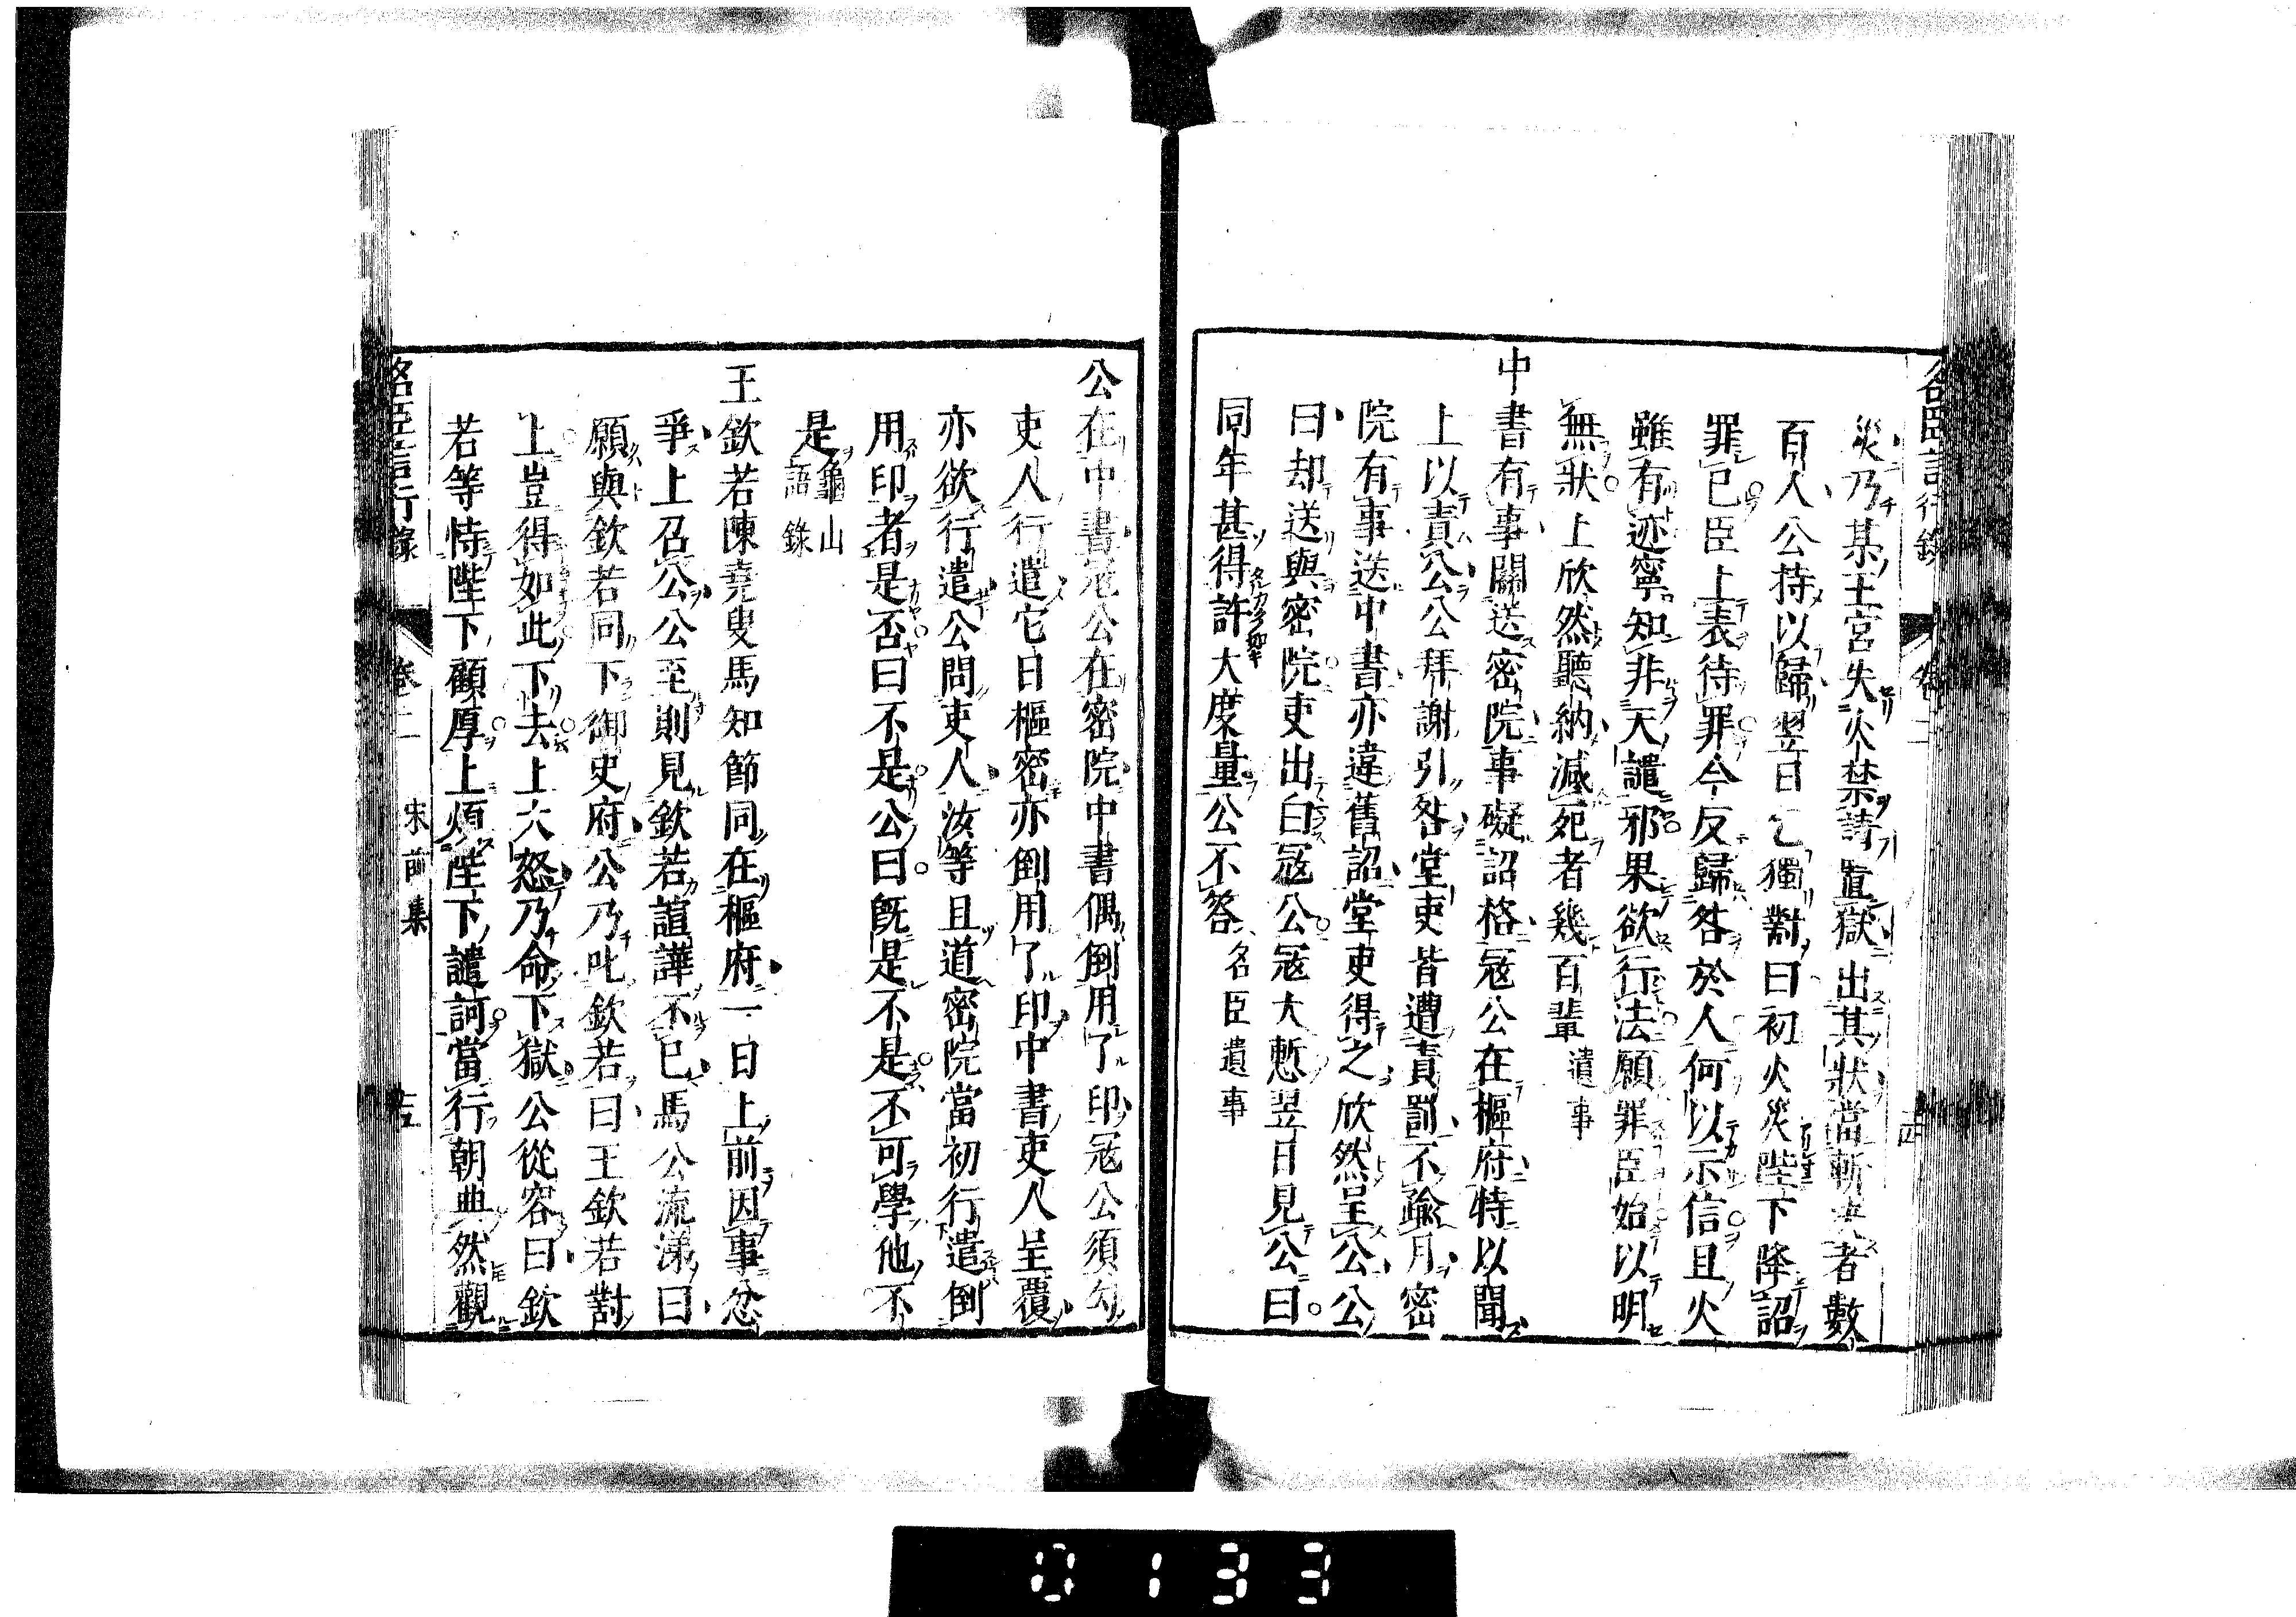 名臣言行錄 卷二 十四
災乃某王宮失火禁請置獄出其狀當斬决者數
百人公持以歸翌日乞獨對曰初火災陛下降詔
罪已臣上表待罪今反歸咎於人何以示信且火
雖有迹寧知非天譴邪果欲行法願罪臣始以明
無狀上欣然聽納減死者幾百輩 遺事
中書有事關送密院事礙詔格寇公在樞府特以聞
上以責公公拜謝引咎堂吏皆遭責罰不踰月密
院有事送中書亦違舊詔堂吏得之欣然呈公公
曰却送與密院吏出白寇公寇大慙翌日見公曰
同年甚得許大度量公不答 名臣遺事
公在中書寇公在密院中書偶倒用了印寇公須勾
吏人行遣它日樞密亦倒用了印中書吏人呈覆
亦欲行遣公問吏人汝等且道密院當初行遣倒
用印者是否曰不是公曰旣是不是不可學他不
是 龜山語錄
王欽若陳堯叟馬知節同在樞府一日上前因事忿
爭上召公公至則見欽若諠譁不已馬公流涕曰
願與欽若同下御史府公乃叱欽若曰王欽若對
上豈得如此下去上大怒乃命下獄公從容曰欽
若等恃陛下顧厚上煩陛下譴訶當行朝典然觀
名臣言行錄 卷二 宋前集 十五
0133